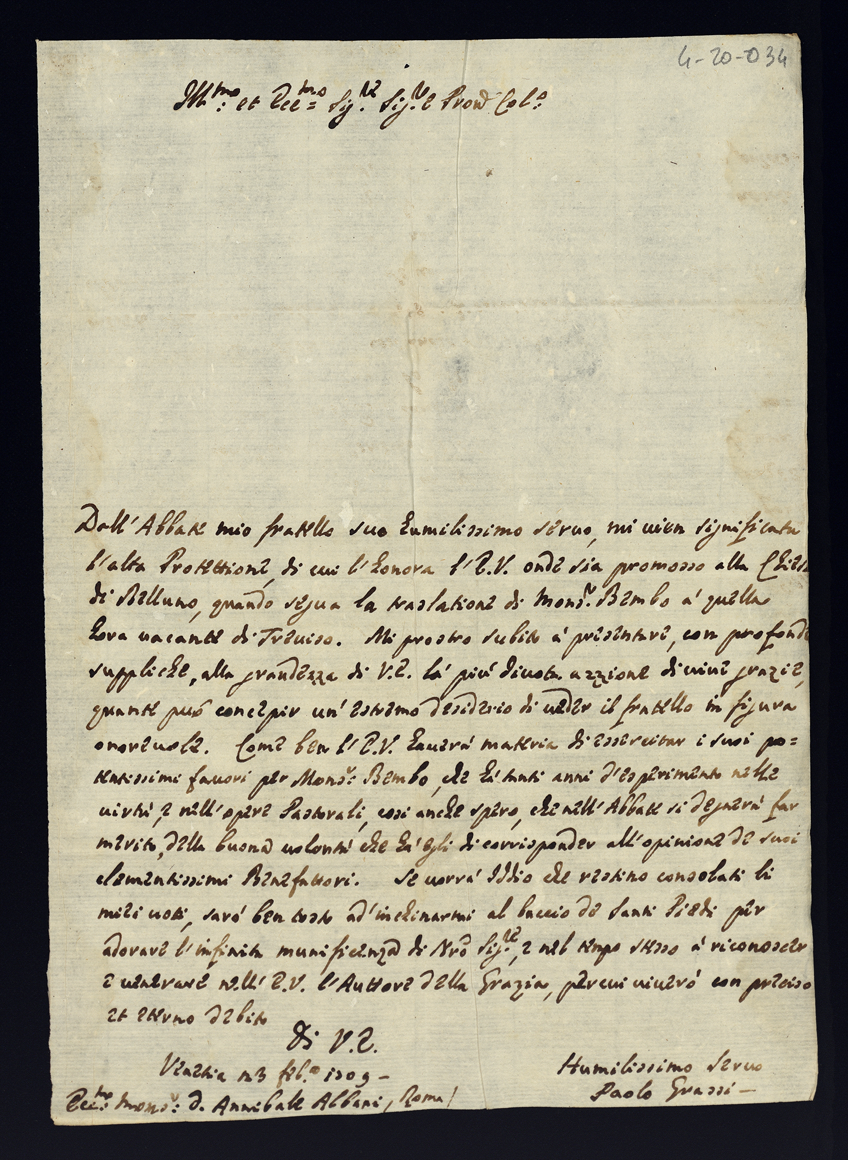 4-20-034
Ill.mo et Ecc.mo Sig.re Sig.re e Pron Col.o
Dall'Abbate mio fratello suo humilissimo servo, mi vien significata
l'alta Protettione, di cui l'honora l'E.V. onde sia promosso alla Chiesa
di Belluno, quando segua la traslatione di Mons.r Bembo à quella
hora vacante di Treviso. Mi prostro subito à presentare, con profonde
suppliche, alla grandezza di V.E. la più divota azzione di vive grazie,
quante può concepir un'estremo desiderio di veder il fratello in figura
onorevole. Come ben l'E.V. haverà materia di essercitar i suoi po=
tentissimi favori per Mons.r Bembo, che hà tanti anni d'esperimento nelle
virtù, e nell'opere Pastorali, così anche spero, che nell'Abbate si degnerà far
merito, della buona volontà che hà egli di corrisponder all'opinione de suoi
clementissimi Benefattori. Se vorrà Iddio che restino consolati li
miei voti, sarò ben tosto ad'inchinarmi al baccio de Santi Piedi per
adorare l'infinita munificenza di Nrõ Sig.re, e nel tempo stesso à riconoscer
e venerare nell'E.V. l'Auttore della Grazia, per cui viverò con preciso
et eterno debito
Di V.E.
Venetia n3 feb.o 1709 –
Humilissimo Servo
Paolo Grassi –
Ecc.mo Mons.r D. Annibale Albani, Roma /